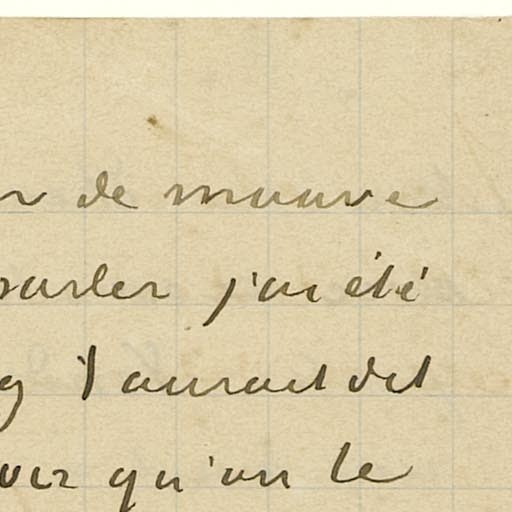 de mauve
parler j'ai été
aurait dit
qu'un le